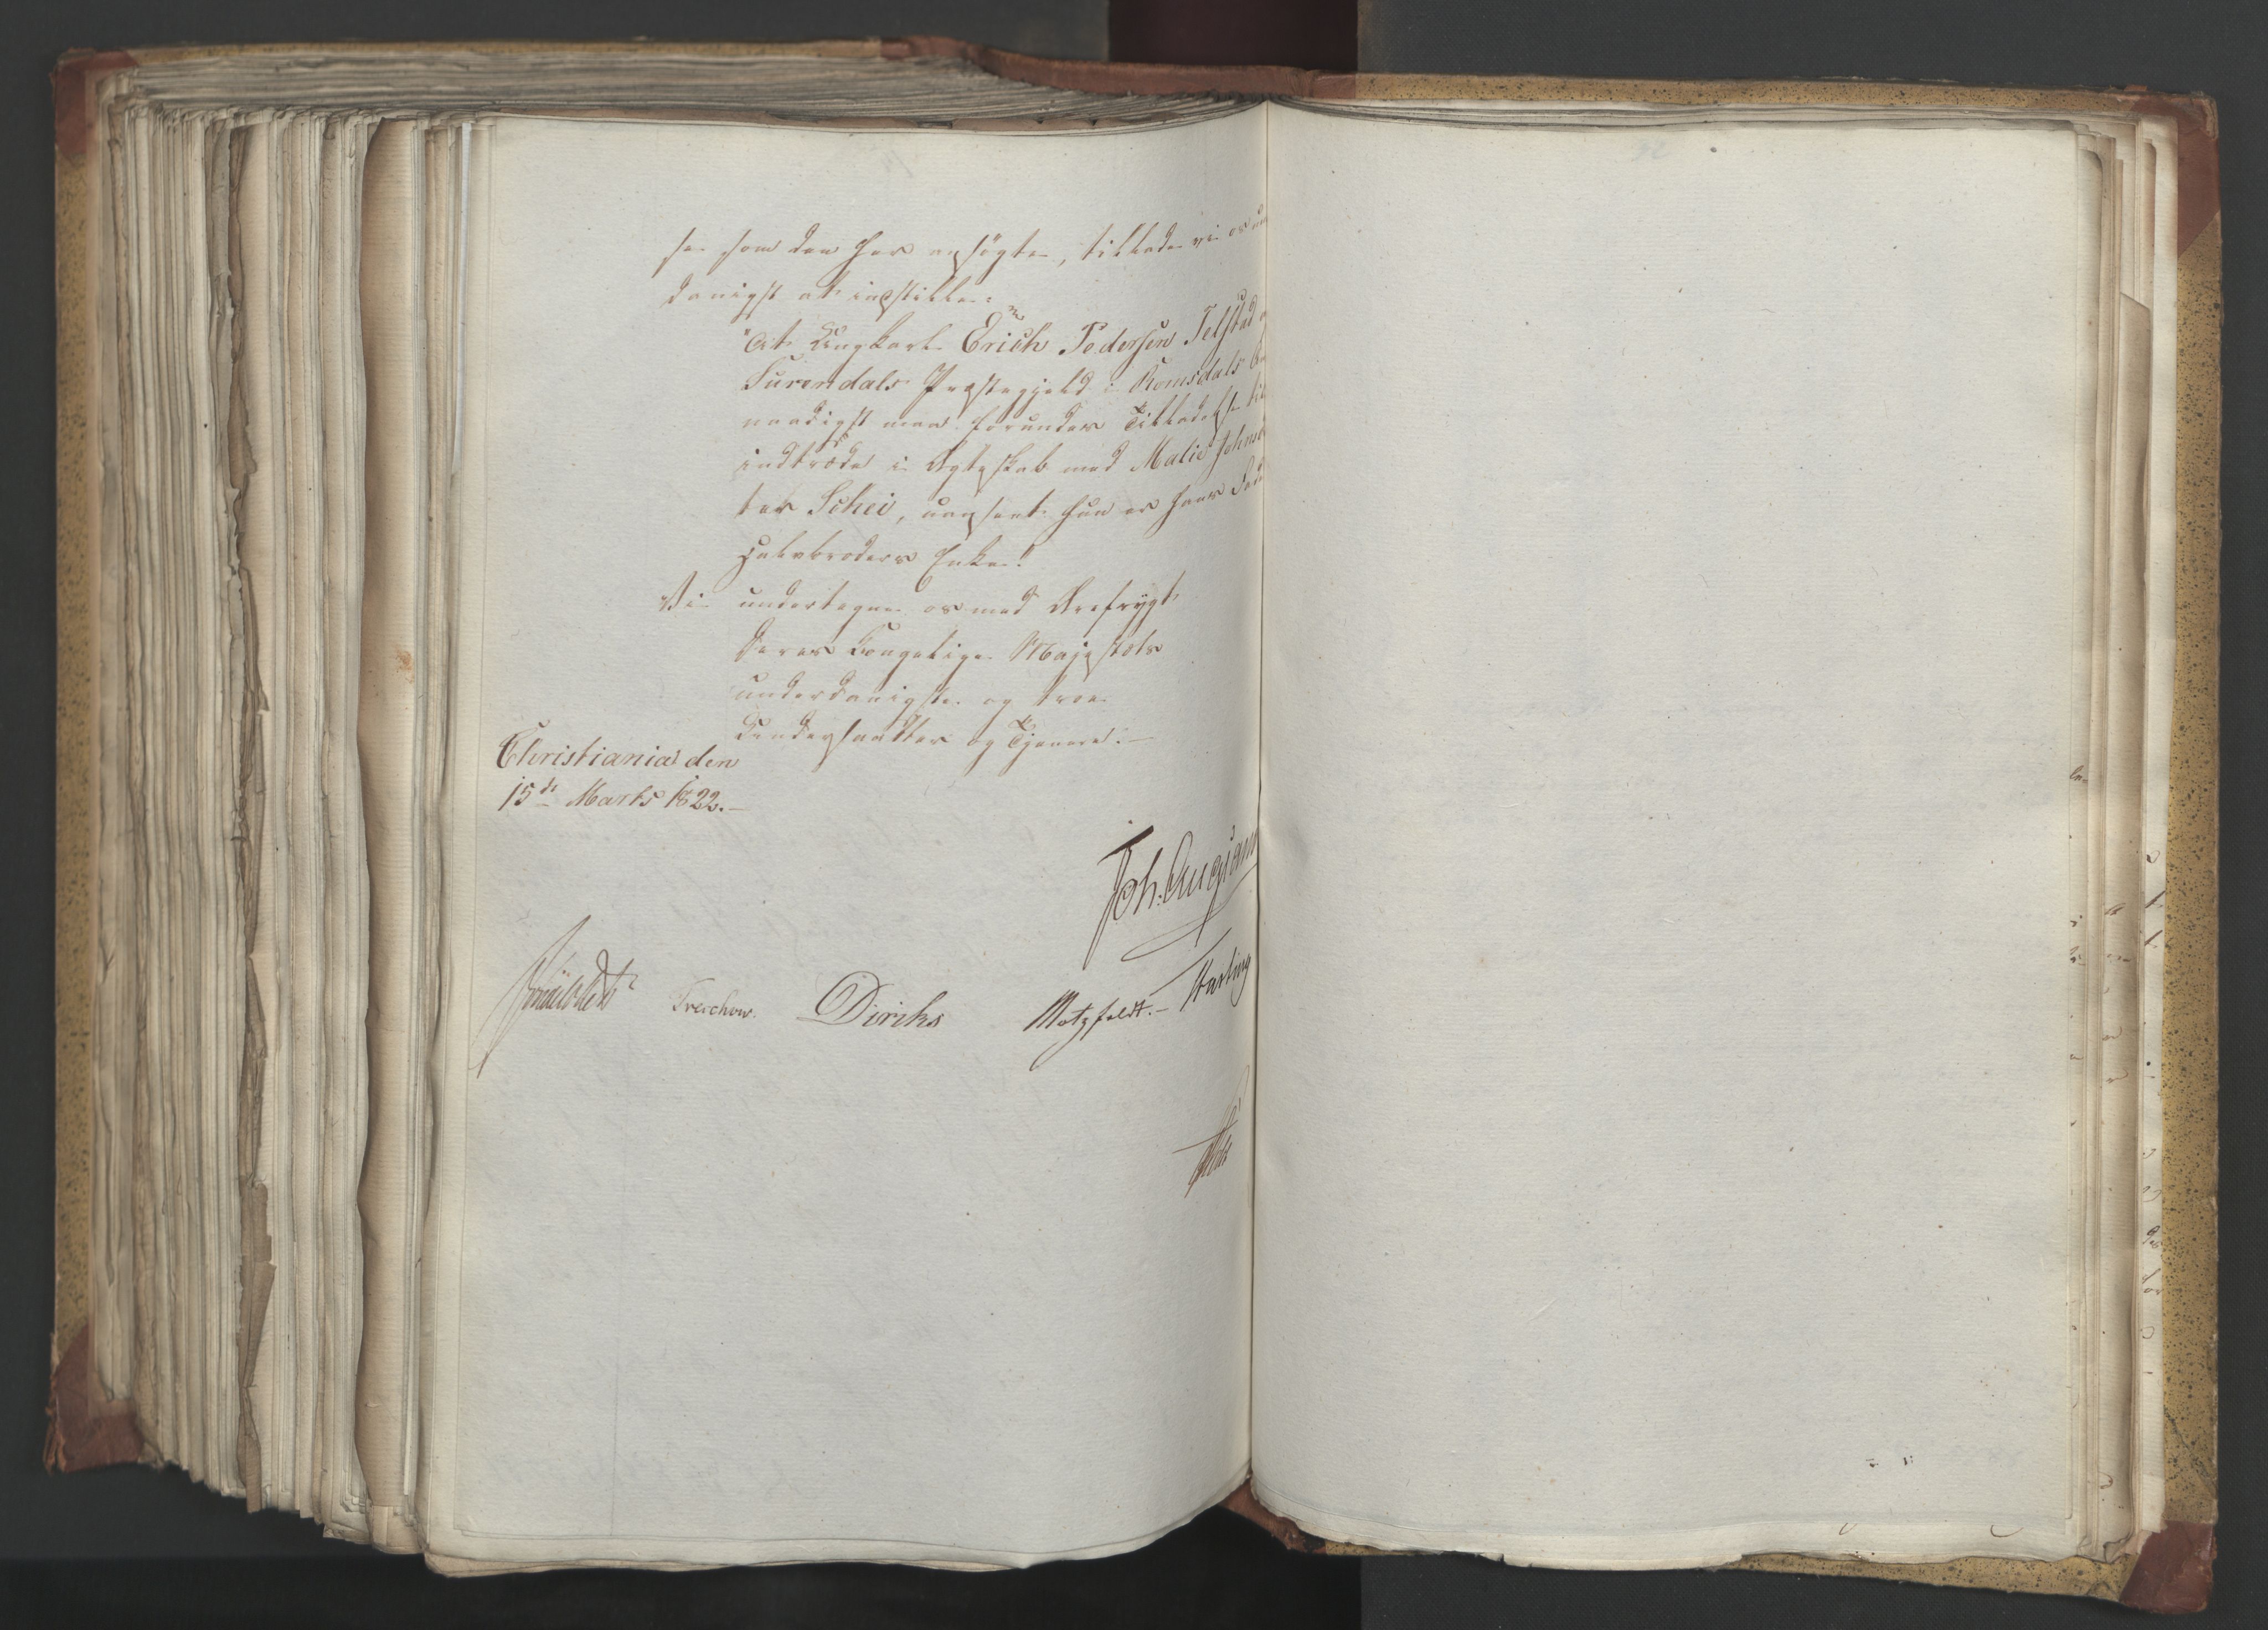 se som den her ansøgte, tillade vi os un
danigst at indstille:
"At Ungkarl Erich Pedersen Telstad
Surendals Præstegjeld i Romsdals
naadigst maa forundes Tilladelse til
indtræde i Ægteskab med Malie Johns
ter Schei, uanseet hun er hans
Halvbroders Enke."
Vi undertegne os med Ærefrygt
Deres Kongelige Majestæts
underdanigste og troe
Undersaatter og Tjenere.—
Christiania den
15de Marts 1822.—
Joh. Aug
Treschow. Diriks Motzfeldt.—